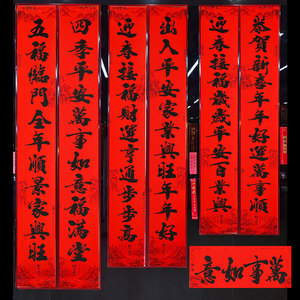 恭賀新喜年年好運萬事順
迎春接福歲歲平安百業興
出入平安家業興旺年年好
迎春接福財運亨通步步高
四季平安萬事如意福滿堂
五福臨門全年順景家興旺
萬事如意